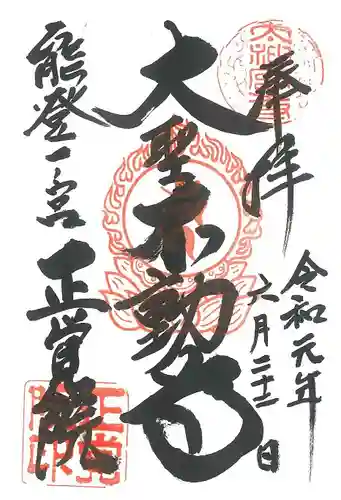 奉拝
令和元年
六月二十二日
大聖不動尊
能登一宮 正覚院